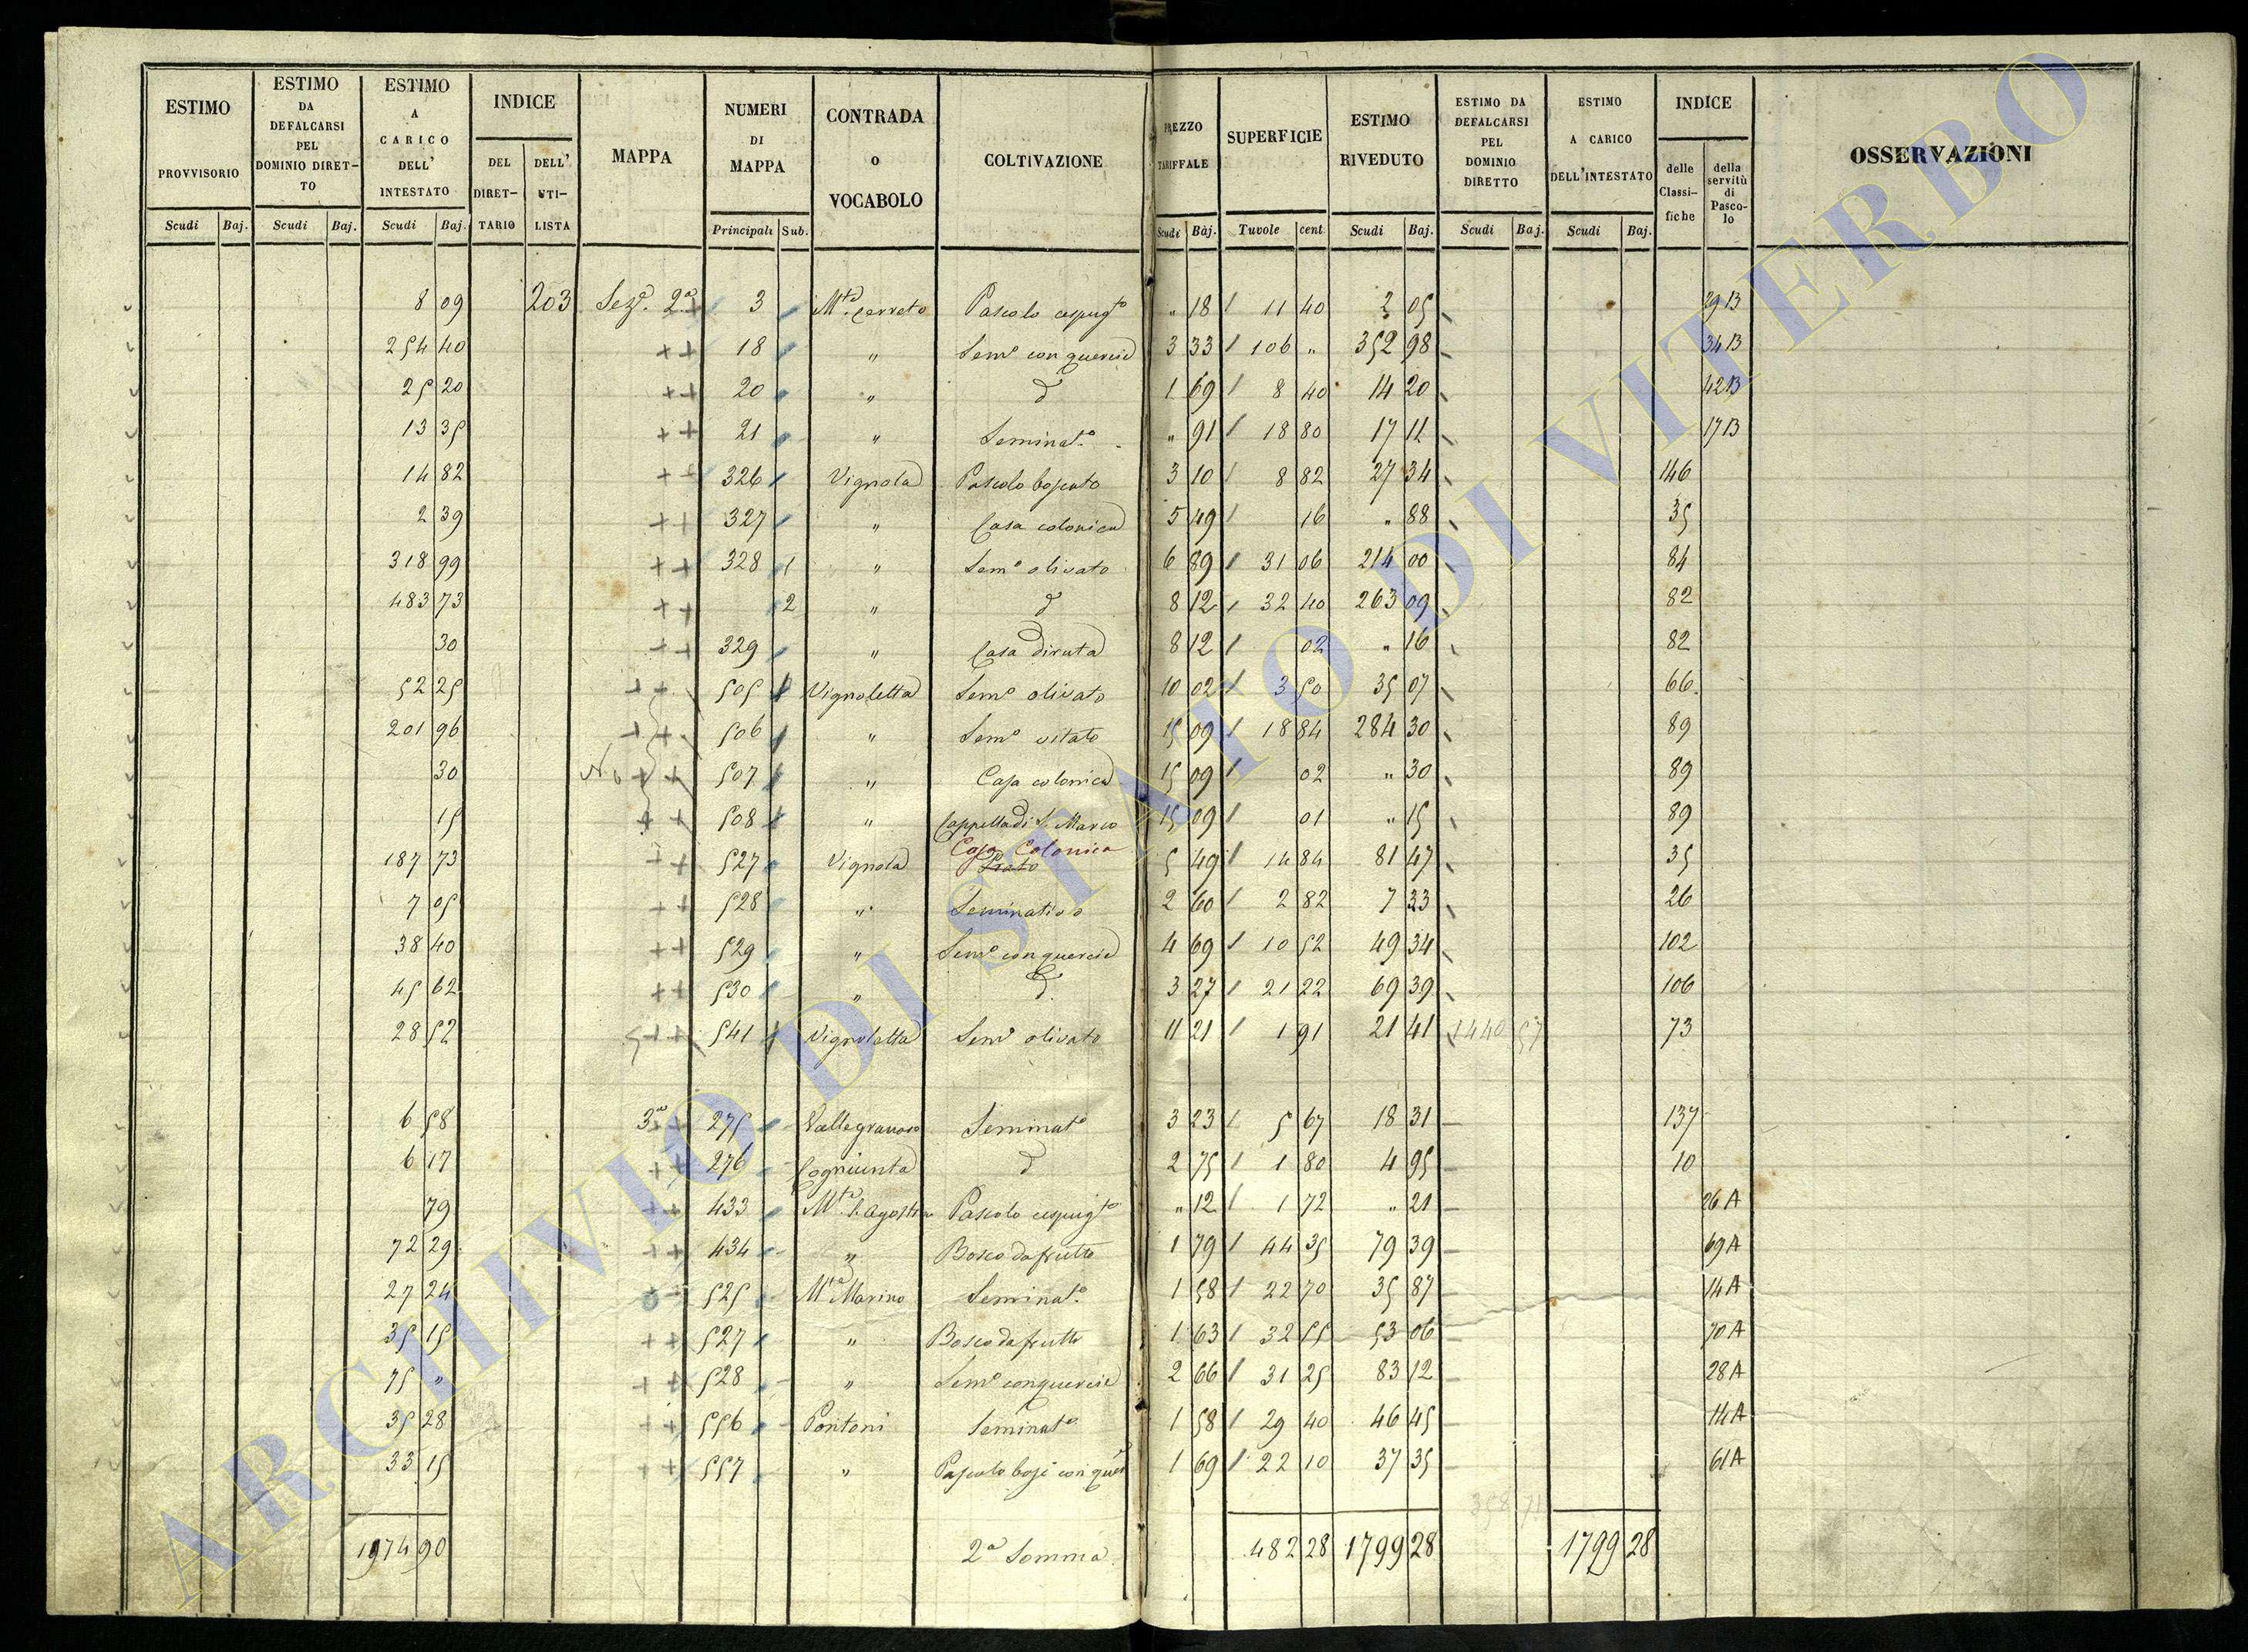 ESTIMO PROVVISORIO | ESTIMO DA DEFALCARSI PEL DOMINIO DIRET-TO | ESTIMO A CARICO DELL' INTESTATO | INDICE | MAPPA | NUMERI DI MAPPA | CONTRADA o VOCABOLO | COLTIVAZIONE | PREZZO TARIFFALE | SUPERFICIE | ESTIMO RIVEDUTO | ESTIMO DA DEFALCARSI PEL DOMINIO DIRETTO | ESTIMO A CARICO DELL'INTESTATO | INDICE | OSSERVAZIONI
DEL DIRET-TARIO | DELL' UTI-LISTA | delle Classi-fiche | della servitù di Pasco-lo
Scudi | Baj. | Scudi | Baj. | Scudi | Baj. | Principali | Sub. | Scudi | Bàj. | Tuvole | cent | Scudi | Baj. | Scudi | Baj. | Scudi | Baj.
8 09 203 Sezᵉ. 2ª 3 Mᵗᵉ. Cerreto Pascolo cespugᵗᵒ " 18 11 40 2 05 29 B
254 40 ++ 18 " Semᵒ con quercie 3 33 106 " 352 98 34 B
25 20 ++ 20 " d 1 69 8 40 14 20 42 B
13 35 ++ 21 " Seminatᵒ " 91 18 80 17 11 17 B
14 82 ++ 326 Vignola Pascolo boscato 3 10 8 82 27 34 146
2 39 ++ 327 " Casa colonica 5 49 16 " 88 35
318 99 ++ 328 1 " Semᵒ olivato 6 89 31 06 214 00 84
483 73 ++ 2 " d 8 12 32 40 263 09 82
30 ++ 329 " Casa diruta 8 12 02 " 16 82
52 25 ++ 505 Vignoletta Semᵒ olivato 10 02 3 50 35 07 66
201 96 ++ 506 " Semᵒ vitato 15 09 18 84 284 30 89
30 No ++ 507 " Casa colonica 15 09 02 " 30 89
15 ++ 508 " Cappella di S. Marco 15 09 01 " 15 89
Casa Colonica
187 73 ++ 527 Vignola Prato 5 49 14 84 81 47 35
7 05 ++ 528 " Seminativo 2 60 2 82 7 33 26
38 40 ++ 529 " Semᵒ con quercie 4 69 10 52 49 34 102
45 62 ++ 530 " d. 3 27 21 22 69 39 106
28 52 ++ 541 Vignoletta Semᵒ olivato 11 21 1 91 21 41 1440 57 73
6 58 3ª 275 Vallegranoso Seminatᵒ 3 23 5 67 18 31 137
6 17 ++ 276 Cogniunta d 2 75 1 80 4 95 10
79 ++ 433 Mᵗᵉ. S. Agostino Pascolo cespugᵗᵒ " 12 1 72 " 21 26 A
72 29 ++ 434 " Bosco da frutto 1 79 44 35 79 39 69 A
27 24 525 Mᵗᵉ Marino Seminatᵒ 1 58 22 70 35 87 14 A
35 15 ++ 527 " Bosco da frutto 1 63 32 55 53 06 70 A
75 " ++ 528 " Semᵒ con quercie 2 66 31 25 83 12 28 A
35 28 ++ 556 Pontoni Seminatᵒ 1 58 29 40 46 45 14 A
33 15 ++ 557 " Pascolo bosc con quer 1 69 22 10 37 35 61 A
358 71
1974 90 2ª Somma 482 28 1799 28 1799 28
ARCHIVIO DI STATO DI VITERBO